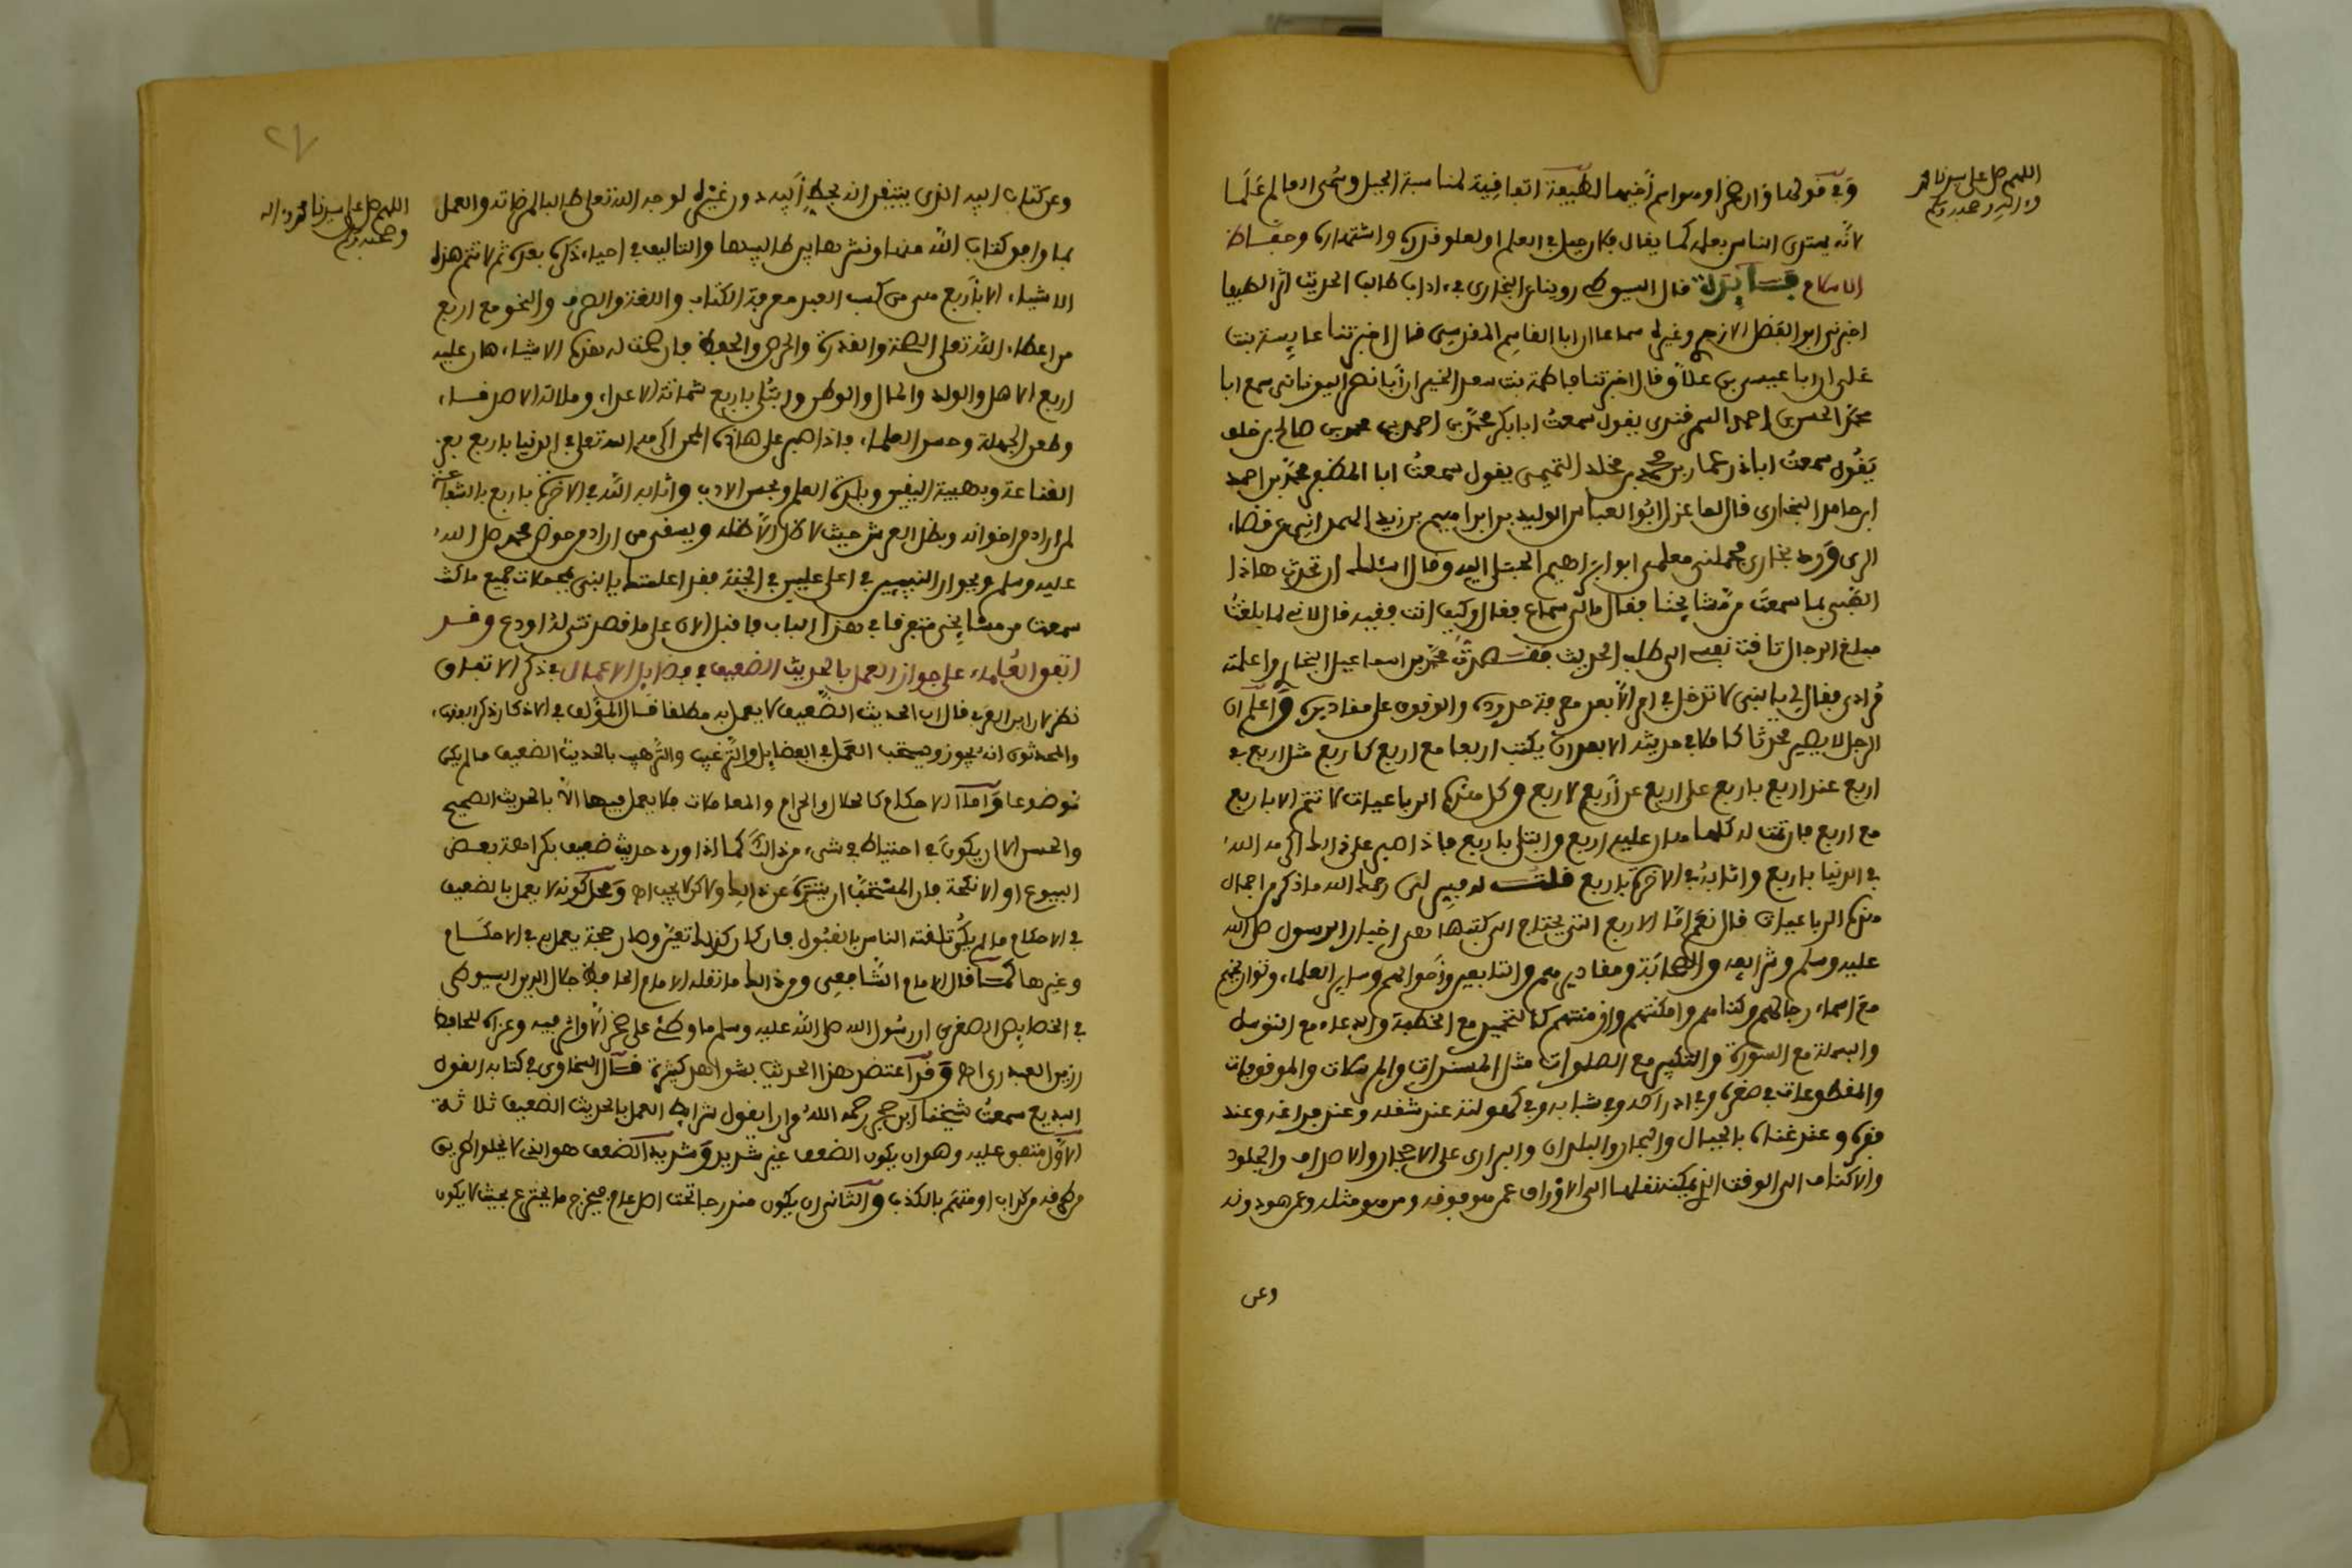 اللهم صل على سيدنا محمد
وءاله وصحبه وسلم
وفي قولها وان صخرا وهو اسم أخيها لطيفة اتفاقية لمناسبة الجبل وسمى العالم علما
لأنه يهتدى الناس بعلمه كما يقال فلان جبل في العلم او لعلو قدره واشتهاره وحفاظ
الاسلام فائدة قال السيوطي روينا عن البخاري في ءاداب طالب الحديث أثرا لطيفا
اخبرني ابو الفضل الازهري وغيره سماعا ان ابا القاسم المقدسي قال اخبرتنا عايشة بنت
علي ان ابا عيسى بن علاق قال اخبرتنا فاطمة بنت سعد الخير ان أبا نصر اليوناني سمع ابا
محمد الحسن بن احمد السمرقندي يقول سمعت ابا بكر محمد بن احمد بن محمد بن صالح بن خلف
يقول سمعت ابا ذر عمار بن محمد بن مخلد التميمي يقول سمعت ابا المظفر محمد بن احمد
ابن حامد البخاري قال لما عزل ابو العباس الوليد بن ابراهيم بن زيد الهمداني عن قضاء
الري ورد بخارى فحملني معلمي ابو ابراهيم الختلي اليه وقال اسئلك ان تحدث هاذا
الصبي بما سمعت من مشايخنا فقال مالي سماع فقال وكيف انت فقيه قال لاني لما بلغت
مبلغ الرجال تاقت نفسي الى طلب الحديث فقصدت محمد بن اسماعيل البخاري واعلمته
مرادي فقال لي يا بني لا تدخل في امر الا بعد معرفة حدوده والوقوف على مقاديره واعلم ان
الرجل لا يصير محدثا كاملا في حديثه الا بعد ان يكتب اربعا مع اربع كاربع مثل اربع في
اربع عند اربع باربع على اربع عن أربع لاربع وكل هذه الرباعيات لا تتم الا باربع
مع اربع فان تمت له كلها هان عليه اربع وابتلي باربع فاذا صبر على ذالك اكرمه الله
في الدنيا باربع واثابه في الاخرة باربع قلت له فسر لي رحمك الله ما ذكرت من اجمال
هذه الرباعيات قال نعم اما الاربع التي يحتاج الى كتبها هي اخبار الرسول صلى الله
عليه وسلم وشرايعه والصحابة ومقاديرهم والتابعين واحوالهم وساير العلماء وتواريخهم
مع اسماء رجالهم وكناهم وامكنتهم وازمنتهم كالتحميد مع الخطبة والدعاء مع التوسل
والبسملة مع السورة والتكبير مع الصلوات مثل المسندات والمرسلات والموقوفات
والمقطوعات في صغره وفي ادراكه وفي شبابه وفي كهولته عند شغله وعند فراغه وعند
فقره وعند غناه بالجبال والبحار والبلدان والبراري على الاحجار والاصداف والجلود
والاكتاف الى الوقت الذي يمكنه نقلها الى الاوراق عمن هو فوقه ومن هو مثله وعمن هو دونه
وعن
٢٧
اللهم صل على سيدنا محمد وءاله
وصحبه وسلم
وعن كتاب ابيه الذي يتيقن انه بخط أبيه دون غيره لوجه الله تعلى طالبا لمرضاته والعمل
بما وافق كتاب الله منها ونشرها بين طالبيها والتاليف في احياء ذكره بعده ثم لا تتم هذه
الاشياء الا باربع هي من كسب العبد معرفة الكتاب واللغة والصرف والنحو مع اربع
من اعطاء الله تعلى الصحة والقدرة والحرص والحفظ فان صحت له هذه الاشياء هان عليه
اربع الاهل والولد والمال والوطن وابتلي باربع شماتة الاعداء وملامة الاصدقاء
وطعن الجهلة وحسد العلماء فاذا صبر على هاذه المحن اكرمه الله تعلى في الدنيا باربع بعز
القناعة وبهيبة اليقين وبلذة العلم وبحسن الادب واثابه الله في الاخرة باربع بالشفاعة
لمن اراد من اخوانه وبظل العرش حيث لا ظل الا ظله ويسقي من اراد من حوض محمد صلى الله
عليه وسلم وبجوار النبيين في اعلى عليين في الجنة فقد اعلمتك يا بني بمجملات جميع ما كنت
سمعت من مشايخي متفرقا في هذا الباب فاقبل الان على ما قصدتني له او دع وقد
اتفق العلماء على جواز العمل بالحديث الضعيف في فضايل الاعمال في ذكر الاتفاق
نظر لان ابن العربي قال ان الحديث الضعيف لا يعمل به مطلقا قال المؤلف في الاذكار ذكر الفقهاء
والمحدثون انه يجوز ويستحب العمل في الفضايل والترغيب والترهيب بالحديث الضعيف ما لم يكن
موضوعا واما الاحكام كالحلال والحرام والمعاملات فلا يعمل فيها الا بالحديث الصحيح
والحسن الا ان يكون في احتياط في شيء من ذالك كما اذا ورد حديث ضعيف بكراهة بعض
البيوع او الانكحة فان المستحب ان يتنزه عن ذالك ولاكن لا يجب اه ومحل كونه لا يعمل بالضعيف
في الاحكام ما لم يكن تلقته الناس بالقبول فان كان كذلك تعين وصار حجة يعمل به في الاحكام
وغيرها كما قال الامام الشافعي ومن ذالك ما نقله الامام الحافظ جلال الدين السيوطي
في الخصايص الصغرى ان رسول الله صلى الله عليه وسلم ما وطئ على صخر الا واثر فيه وعزاه للحافظ
رزين العبدري اه وقد اعتضد هذا الحديث بشواهد كثيرة قال السخاوي في كتابه القول
البديع سمعت شيخنا ابن حجر رحمه الله مرارا يقول شرايط العمل بالحديث الضعيف ثلاثة
الاول متفق عليه وهو ان يكون الضعف غير شديد وشديد الضعف هو الذي لا يخلو طريق
من طرقه من كذاب او متهم بالكذب والثاني ان يكون مندرجا تحت اصل عام فيخرج ما يخترع بحيث لا يكون